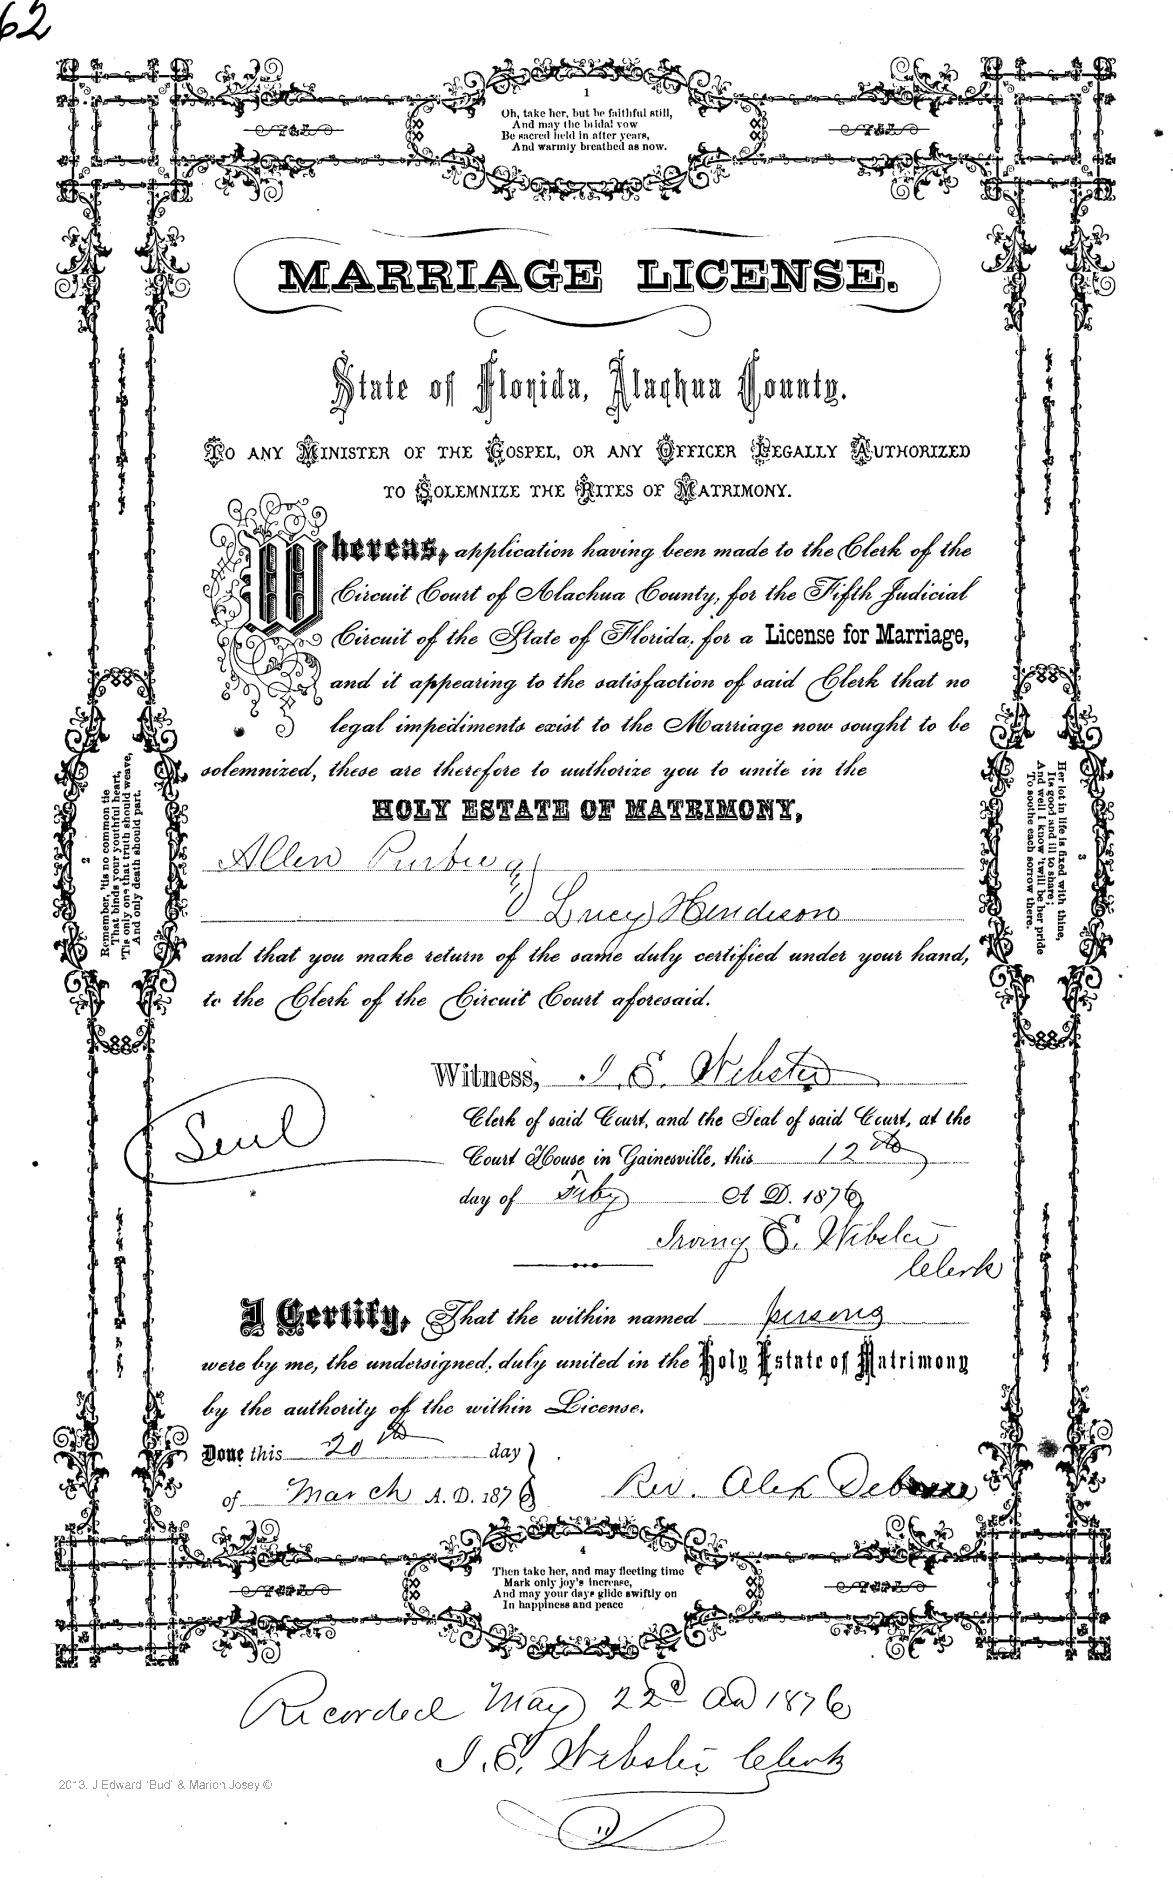 62
1
Oh, take her, but be faithful still,
And may the bridal vow
Be sacred held in after years,
And warmly breathed as now.
MARRIAGE LICENSE.
State of Florida, Alachua County.
TO ANY MINISTER OF THE GOSPEL, OR ANY OFFICER LEGALLY AUTHORIZED
TO SOLEMNIZE THE RITES OF MATRIMONY.
Whereas, application having been made to the Clerk of the
Circuit Court of Alachua County, for the Fifth Judicial
Circuit of the State of Florida, for a License for Marriage,
and it appearing to the satisfaction of said Clerk that no
legal impediments exist to the Marriage now sought to be
solemnized, these are therefore to authorize you to unite in the
HOLY ESTATE OF MATRIMONY,
Allen
& Lucy Henderson
and that you make return of the same duly certified under your hand,
to the Clerk of the Circuit Court aforesaid.
2
Remember, 'tis no common tie
That binds your youthful heart,
'Tis only one that truth should weave,
And only death should part.
3
Her lot in life is fixed with thine,
Its good and ill to share;
And well I know 'twill be her pride
To soothe each sorrow there.
Witness, I. E. Webster
Clerk of said Court, and the Seal of said Court, at the
Seal
Court House in Gainesville, this 12th
day of Feby A. D. 1876
Irving E. Webster
Clerk
I Certify, That the within named persons
were by me, the undersigned, duly united in the Holy Estate of Matrimony
by the authority of the within License.
Done this 20th day
of March A. D. 1876 Rev. Alex
4
Then take her, and may fleeting time
Mark only joy's increase,
And may your days glide swiftly on
In happiness and peace
Recorded May 22d AD 1876
I. E. Webster Clerk
2013. J Edward 'Bud' & Marion Josey ©